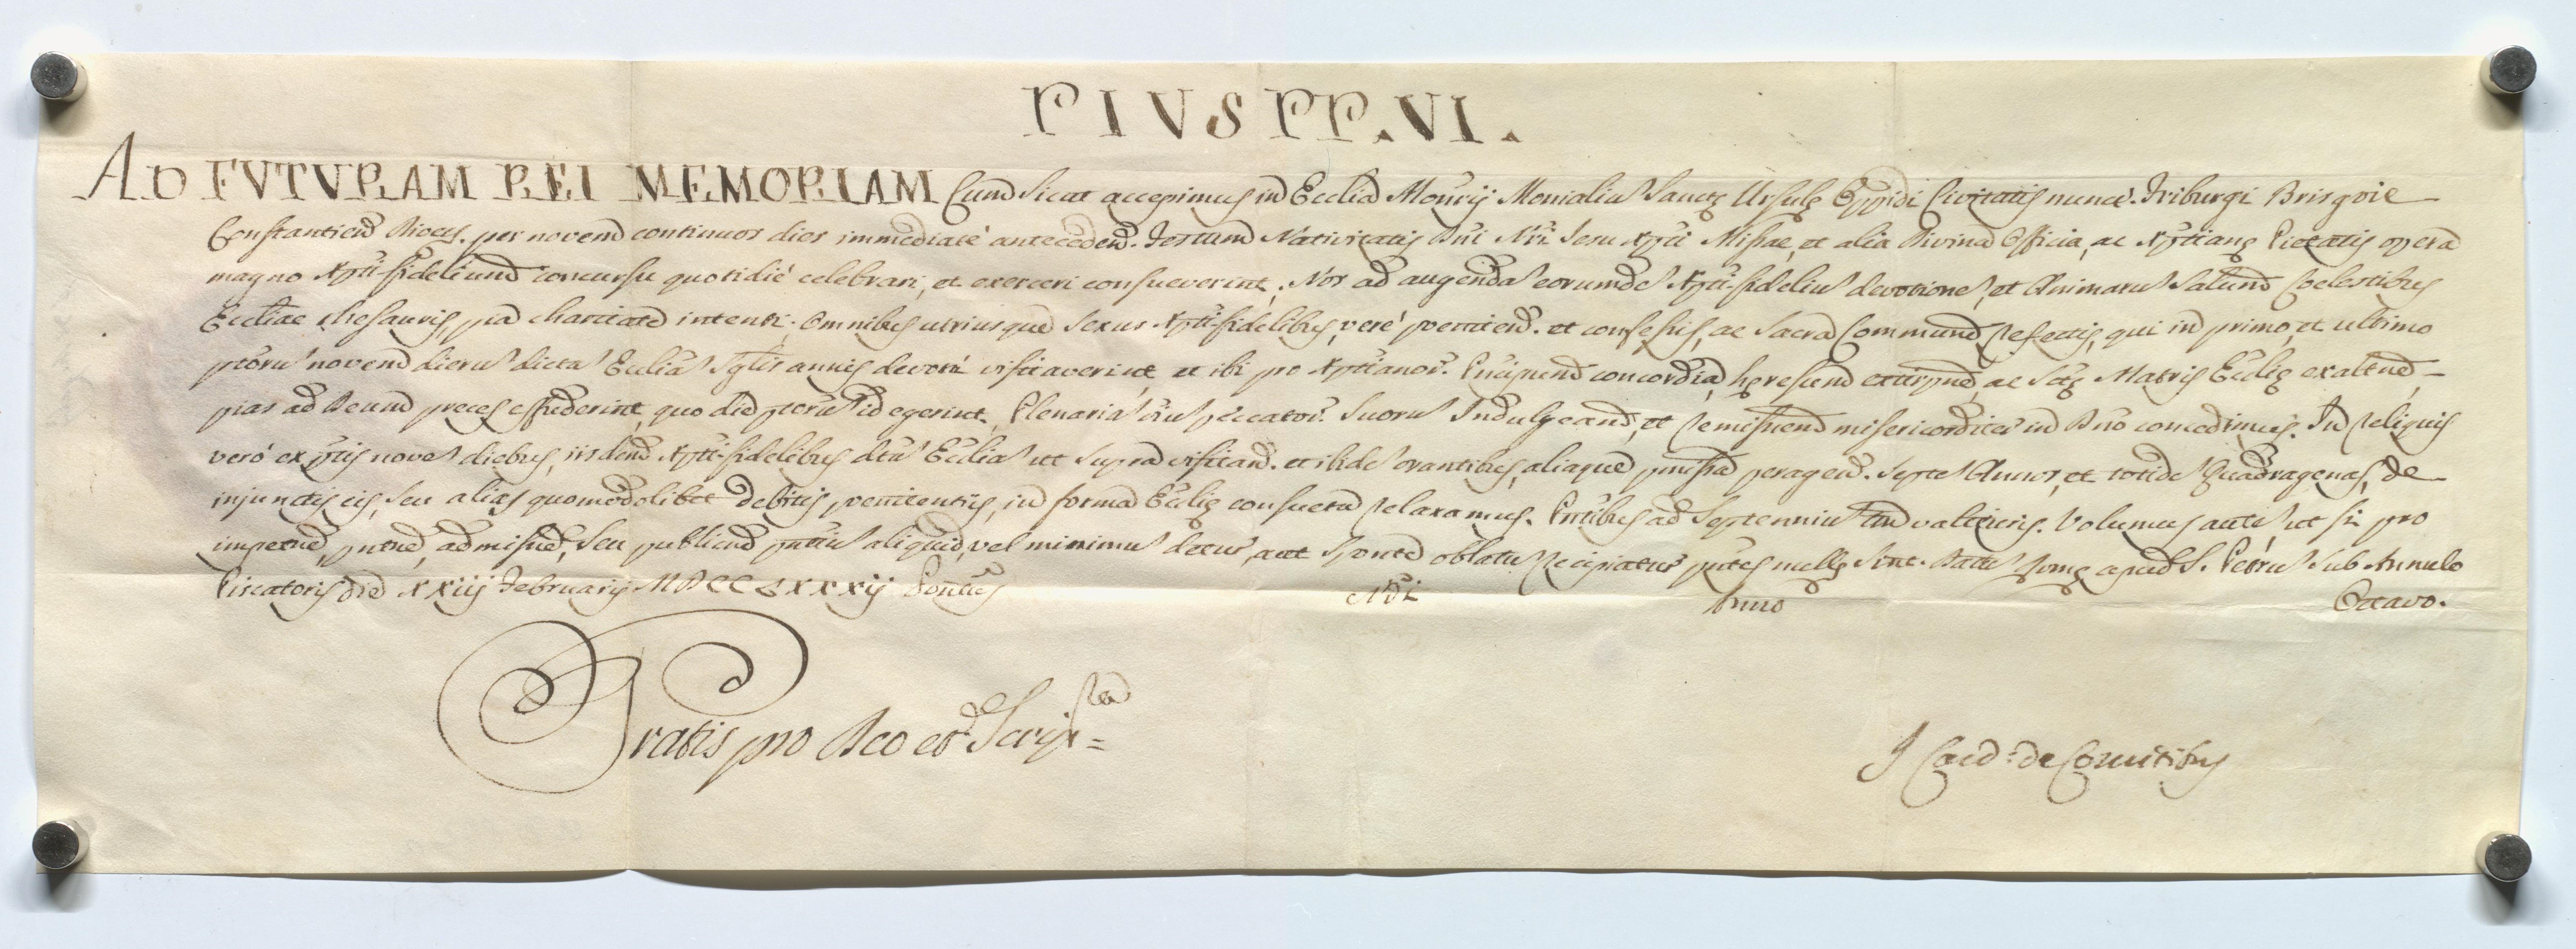 PIUS PP. VI.
AD FVTVRAM REI MEMORIAM Cum sicut accepimus in Ecclia Monrij Monialiu Sanctę Ursulę Oppidi Civitatis nunc. Friburgi Brisgoie
Constantien Dioces. per novem continuos dies immediatè anteceden. Festum Nativitatis Dni Nri Jesu Xpti Missae, et alia Divina Officia, ac Xptianę Pietatis opera
magno Xpti-fidelium concursu quotidiè celebrari, et exerceri consueverint, Nos ad augenda eorumde Xpti-fideliu devotione, et Animaru Salutem Coelestibus
Eccliae thesauris pia charitate intenti. Omnibus utriusque sexus Xpti-fidelibus, verè penitен. et confessis, ac Sacra Commune refectis, qui in primo, et ultimo
ptoru novem dieru dicta Eccliā Sglis annis devotè visitaverint, et ibi pro Xptianor. Principum concordia, hęresum extirpne, ac Stę Matris Ecclię exaltne
pias ad Deum preces effuderint, quo die ptoru id egerint, Plenaria oiu peccator. Suoru Indulgeam, et remisnem misericorditer in Dno concedimus. In reliquis
verò ex ptis nove diebus, iisdem Xpti-fidelibus dta Ecclia ut supra visitan. et ibide orantibus, aliaque pmissa peragen. Septe Annos, et totide Quadragenas, de
injunctis eis, seu aliàs quomodolibet debitis penitentiis, in forma Ecclię consueta relaxamus. Pntibus ad Septenniu tm valituris. Volumus aute, ut si pro
impetne, pntne, admissne, seu publicne pntiu aliquid, vel minimu detur, aut sponte oblatu recipiatur pntes nullę sint. Datu Romę apud S. Petru Sub Annulo
Piscatoris die xxiij Februarij MDCCLXXXij Pontus Nri Anno Octavo.
Gratis pro Deo et Scripra
J Card. de Comitibus